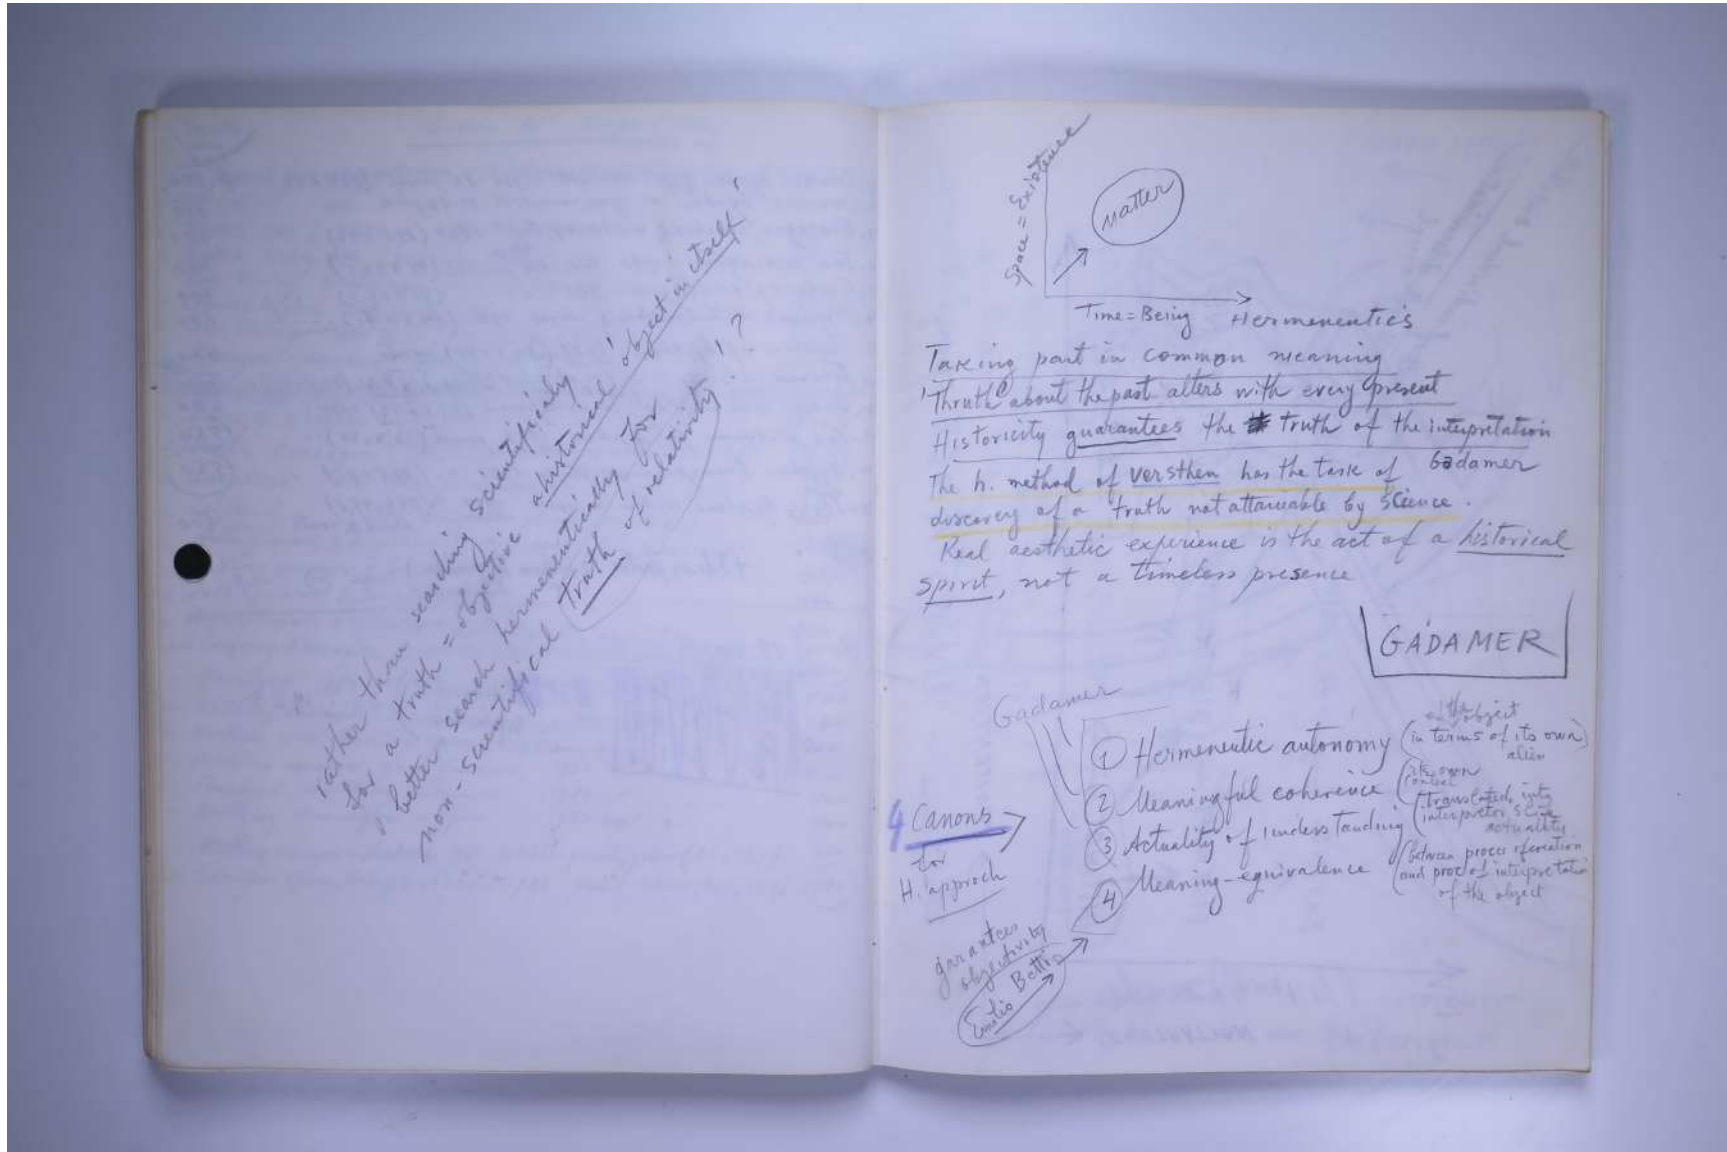 rather than searching scientifically
for a truth = objective ahistorical 'object in itself'
better search hermeneutically for
non-scientifical truth of relativity!?
Space = Existence
Matter
Time = Being
Hermeneutics
Taking part in common meaning
'Thruth about the past alters with every present
Historicity guarantees the truth of the interpretation
The h. method of versthen has the task of Gadamer
discovery of a truth not attainable by science.
Real aesthetic experience is the act of a historical
spirit, not a timeless presence
GADAMER
Gadamer
4 Canons
for
H. approch
1 Hermeneutic autonomy (the object
in terms of its own)
alien
2 Meaningful coherence (its own
context
3 Actuality of understanding (translated into
interpretor's
actuality
4 Meaning-equivalence (between proces of creation
and proc of interpretation
of the object
garantees
objectivity
Emilio Betti